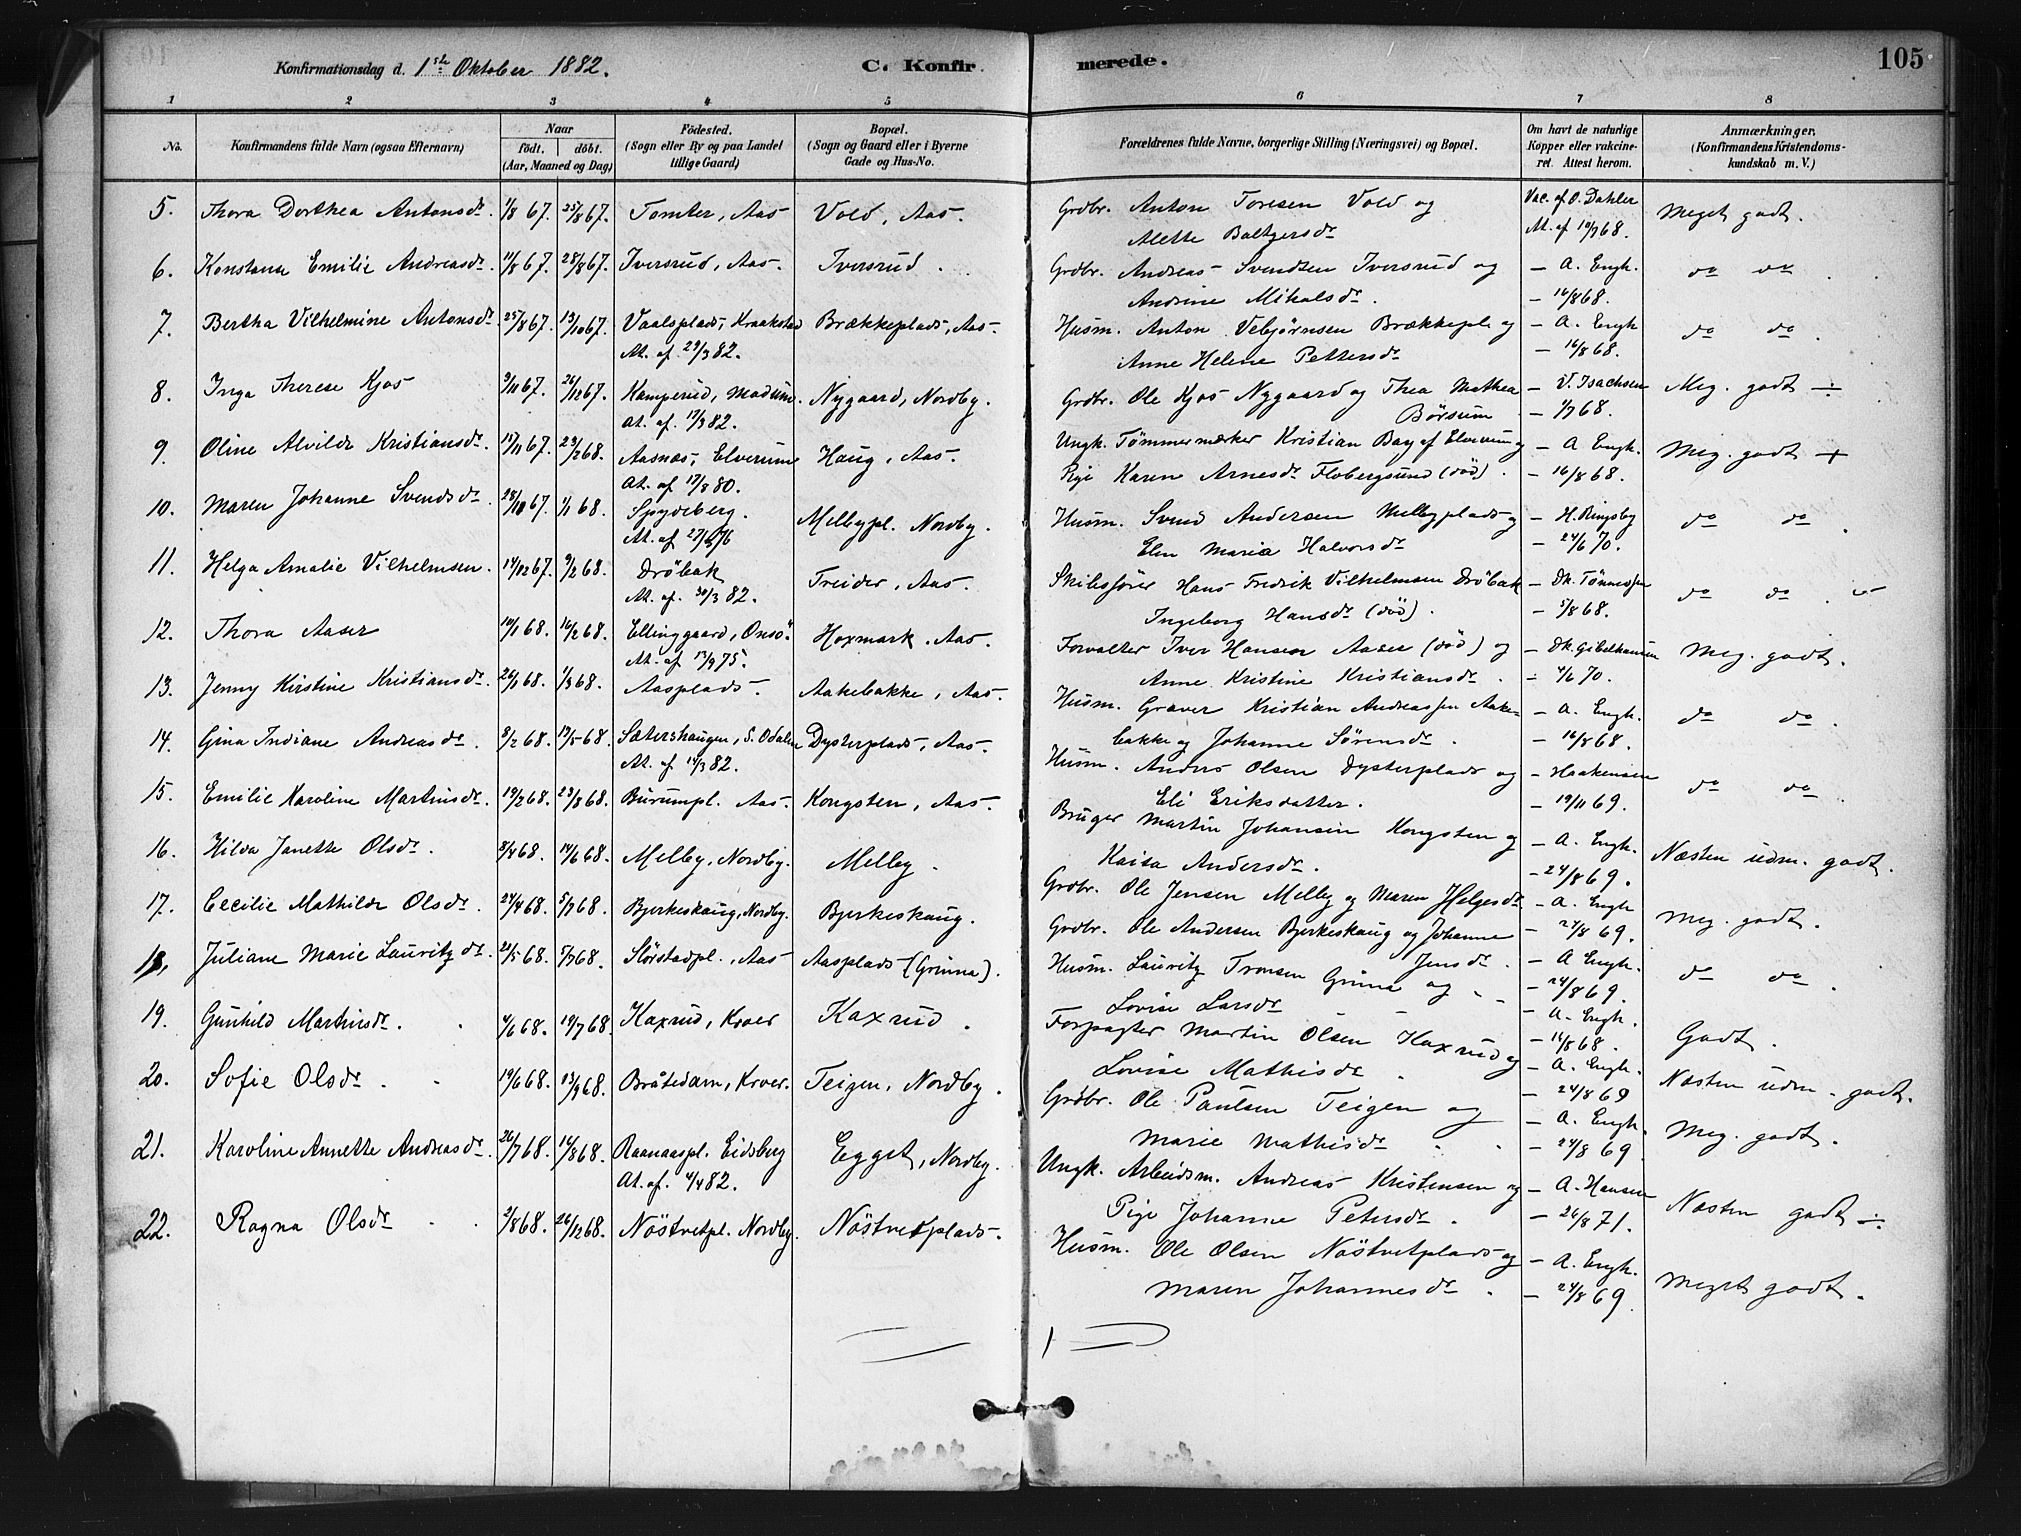 105
Konfirmationsdag d. 1ste Oktober 1882.
C. Konfirmerede.
1 2 3 4 5 6 7 8
No.
Konfirmandens fulde Navn (ogsaa Efternavn)
Naar
födt. döbt.
(Aar, Maaned og Dag)
Födested.
(Sogn eller By og paa Landet tillige Gaard)
Bopæl.
(Sogn og Gaard eller i Byerne Gade og Hus-No.
Forældrenes fulde Navne, borgerlige Stilling (Næringsvei) og Bopæl.
Om havt de naturlige Kopper eller vakcineret. Attest herom.
Anmærkninger.
(Konfirmandens Kristendomskundskab m. V.)
5. Thora Dorthea Antonsdr. 1/8 67. 25/8 67. Tomter, Aas Vold, Aas. Grdbr. Anton Toresen Vold og Vac. af O. Dahler Meget godt.
Alette Baltzersdr At. af 10/9 68.
6. Konstanse Emilie Andreasdr. 11/8 67. 28/8 67. Iversrud, Aas. Iversrud. Grdbr. Andreas Svendsen Iversrud og — A. Engh. do do.
Andrine Mikalsdr. — 16/8 68.
7. Bertha Vilhelmine Antonsdr. 25/8 67. 13/10 67. Vaalsplads, Kraakstad Brækkeplads, Aas. Husm. Anton Vebjørnsen Brækkepl. og — A. Engh do do.
At. af 29/3 82. Anne Helene Pettersdr — 16/8 68.
8. Inga Therese Kjos 9/11 67. 26/12 67. Kamperud, Modum. Nygaard, Nordby. Grdbr. Ole Kjos Nygaard og Thea Mathea — V. Isachsen Meg. godt ÷
At. af. 17/3 82. Börsum — 1/7 68.
9. Oline Alvilde Kristiansdr. 17/11 67. 23/2 68. Aasnæs, Elverum Haug, Aas. Ungk. Tømmermærker Kristian Bay af Elverum og — A Engh. Meg. godt +
At. af 17/8 80. Pige Karen Arnesdr Flobergsund (död). — 16/8 68.
10. Maren Johanne Svendsdr. 28/10 67. 1/1 68. Spydeberg. Melbypl. Nordby. Husm. Svend Andersen Melbyplads og — H. Ringsby do do.
Elen Maria Halvorsdr — 24/6 70.
11. Helga Amalie Vilhelmsen. 14/12 67. 9/2 68. Dröbak Treider, Aas. Skibsfører Hans Fredrik Vilhelmsen Dröbak — Dk. Tönnessen do do.
At. af. 30/3 82. Ingeborg Hansdr (död). — 5/8 68.
12. Thora Aaser 10/1 68. 16/2 68. Ellinggaard, Onsö. Hoxmark. Aas. Forvalter Iver Hansen Aaser (död) og — Dk. Gibelhausen Meg. godt.
At. af 13/9 75. Anne Kristine Kristiansdr. — 4/6 70.
13. Jenny Kirstine Kristiansdr. 26/1 68. 1/3 68. Aasplads. Aakebakke, Aas. Husm. Graver Kristian Andreassen Aake- — A. Engh. do do.
bakke og Johanne Sörensdr. — 16/8 68.
14. Gina Indiane Andreasdr. 3/2 68. 17/5 68. Sætershaugen, S. Odalen Dysterplads, Aas. Husm. Anders Olsen Dysterplads og — Haakensen do do.
At. af. 14/3 82. Eli Eriksdatter. — 19/11 69.
15. Emilie Karoline Martinsdr. 19/2 68. 23/8 68. Burumpl. Aas. Kongsten, Aas. Bruger Martin Johansen Kongsten og — A. Engh. Næsten udm. godt.
Kaisa Andersdr. — 24/8 69.
16. Hilda Janette Olsdr. 3/4 68. 14/6 68. Melby, Nordby. Melby. Grdbr. Ole Jensen Melby og Maren Helgesdr. — A. Engh Meg. godt.
— 24/8 69.
17. Cecilie Mathilde Olsdr. 24/4 68. 5/7 68. Bjerkeskaug, Nordby. Bjerkeskaug. Grdbr. Ole Andersen Bjerkeskaug og Johanne — A Engh. do do.
Jensdr. — 24/8 69.
18. Juliane Marie Lauritzdr. 21/5 68. 5/7 68. Slörstadpl., Aas Aasplads (Grinna). Husm. Lauritz Tronsen Grinna og — A. Engh. Godt.
Lovise Larsdr — 16/8 68.
19. Gunhild Martinsdr. 4/6 68. 19/7 68. Kaxrud, Kroer Kaxrud. Forpagter Martin Olsen Kaxrud og — A. Engh. Næsten udm. godt.
Lovise Mathisdr. — 24/8 69
20. Sofie Olsdr. 19/6 68. 13/9 68. Bråtedam, Kroer. Teigen, Nordby. Grdbr. Ole Paulsen Teigen og — A. Engh. Meg. godt.
Marie Mathisdr — 24/8 69.
21. Karoline Annette Andreasdr. 26/7 68. 16/8 68. Raanaaspl. Eidsberg Egget, Nordby. Ungk. Arbeidsm. Andreas Kristensen og — A. Hansen Næsten godt ÷
At. af. 4/4 82. Pige Johanne Petersdr. — 26/8 71.
22. Ragna Olsdr 2/8 68. 26/12 68. Nöstvetpl. Nordby. Nöstvetplads. Husm. Ole Olsen Nöstvetplads og — A. Engh. Meget godt.
Maren Johannesdr. — 24/8 69.